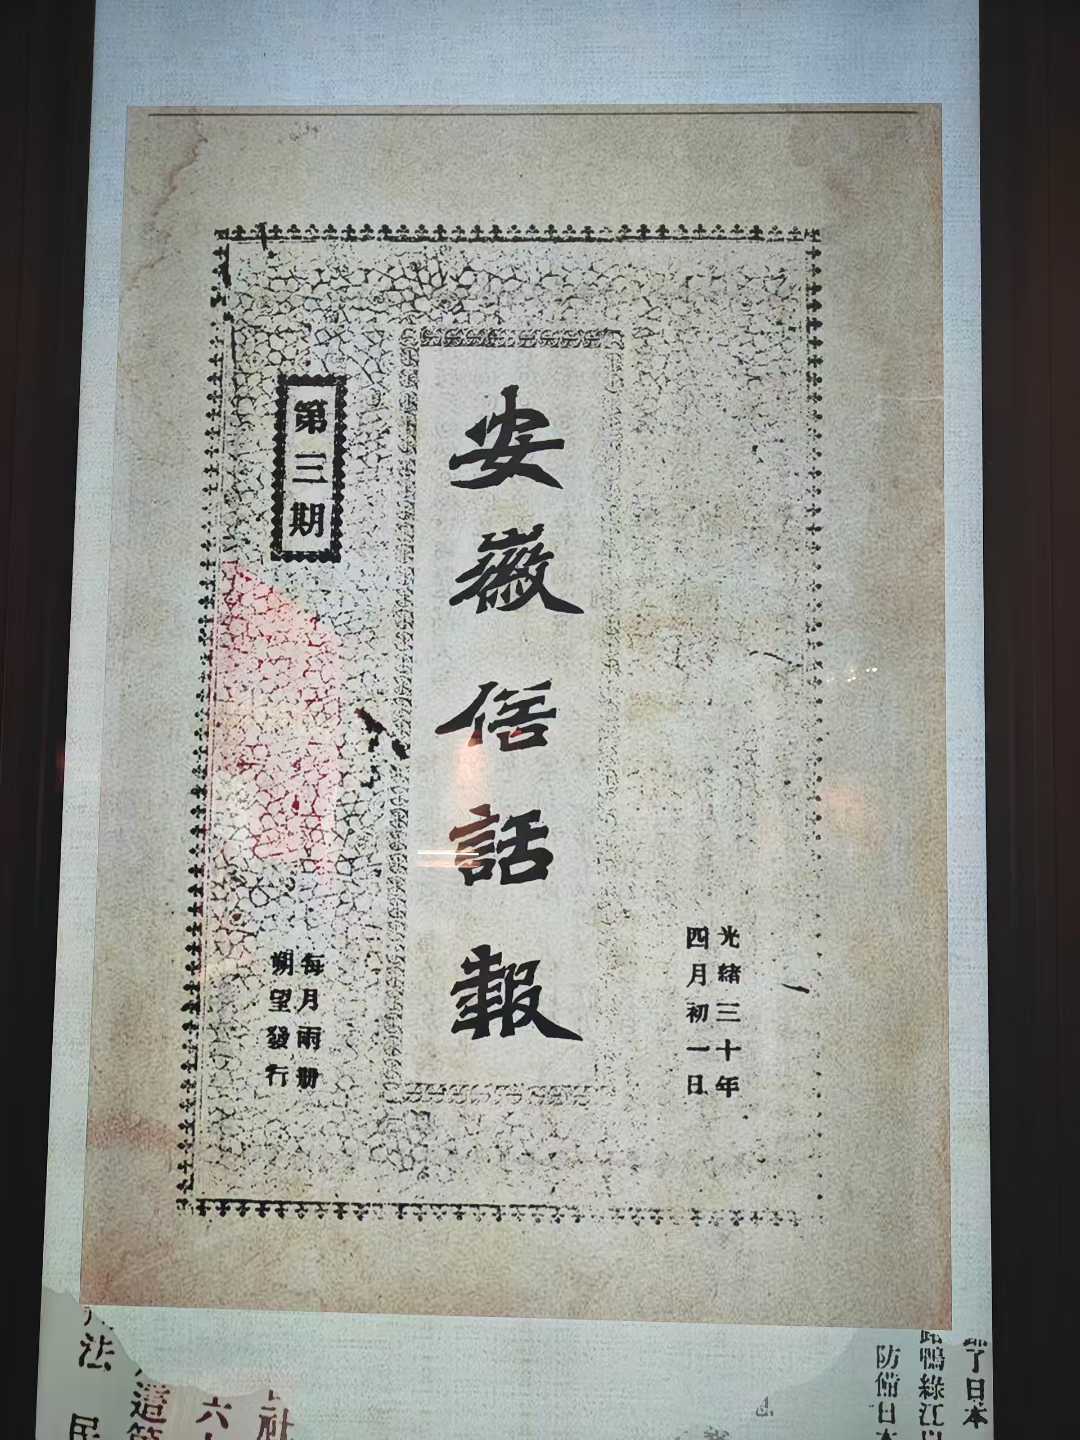 安徽俗話報
第三期
光緒三十年
四月初一日
每月兩册
朔望發行
了日本
鴨綠江
防備日本
社
六
遣
法
民